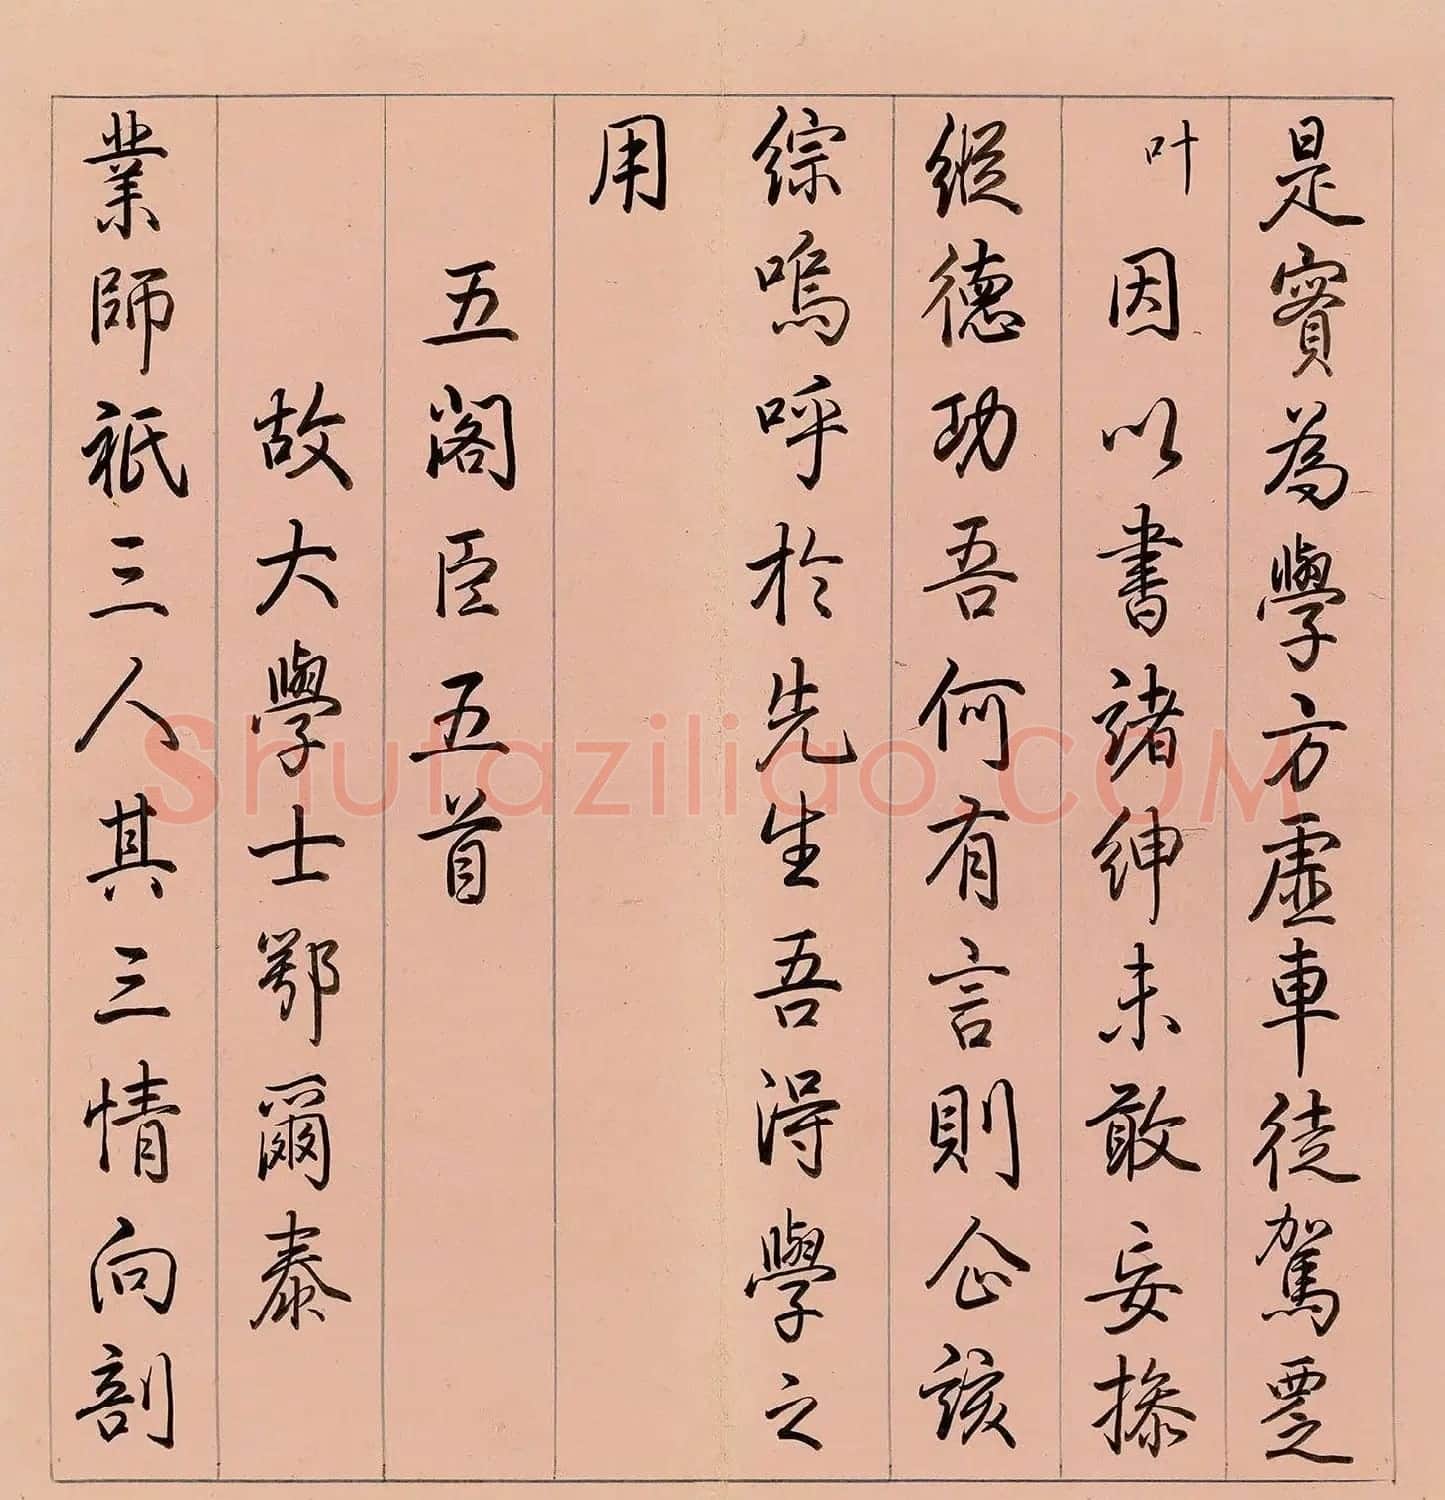 是寶為學方虛車徒駕覂
叶因以書諸紳未敢妄操
縱德功吾何有言則企該
綜嗚呼於先生吾淂學之
用
五閣臣五首
故大學士鄂爾泰
業師祇三人其三情向剖
Shufaziliao.COM